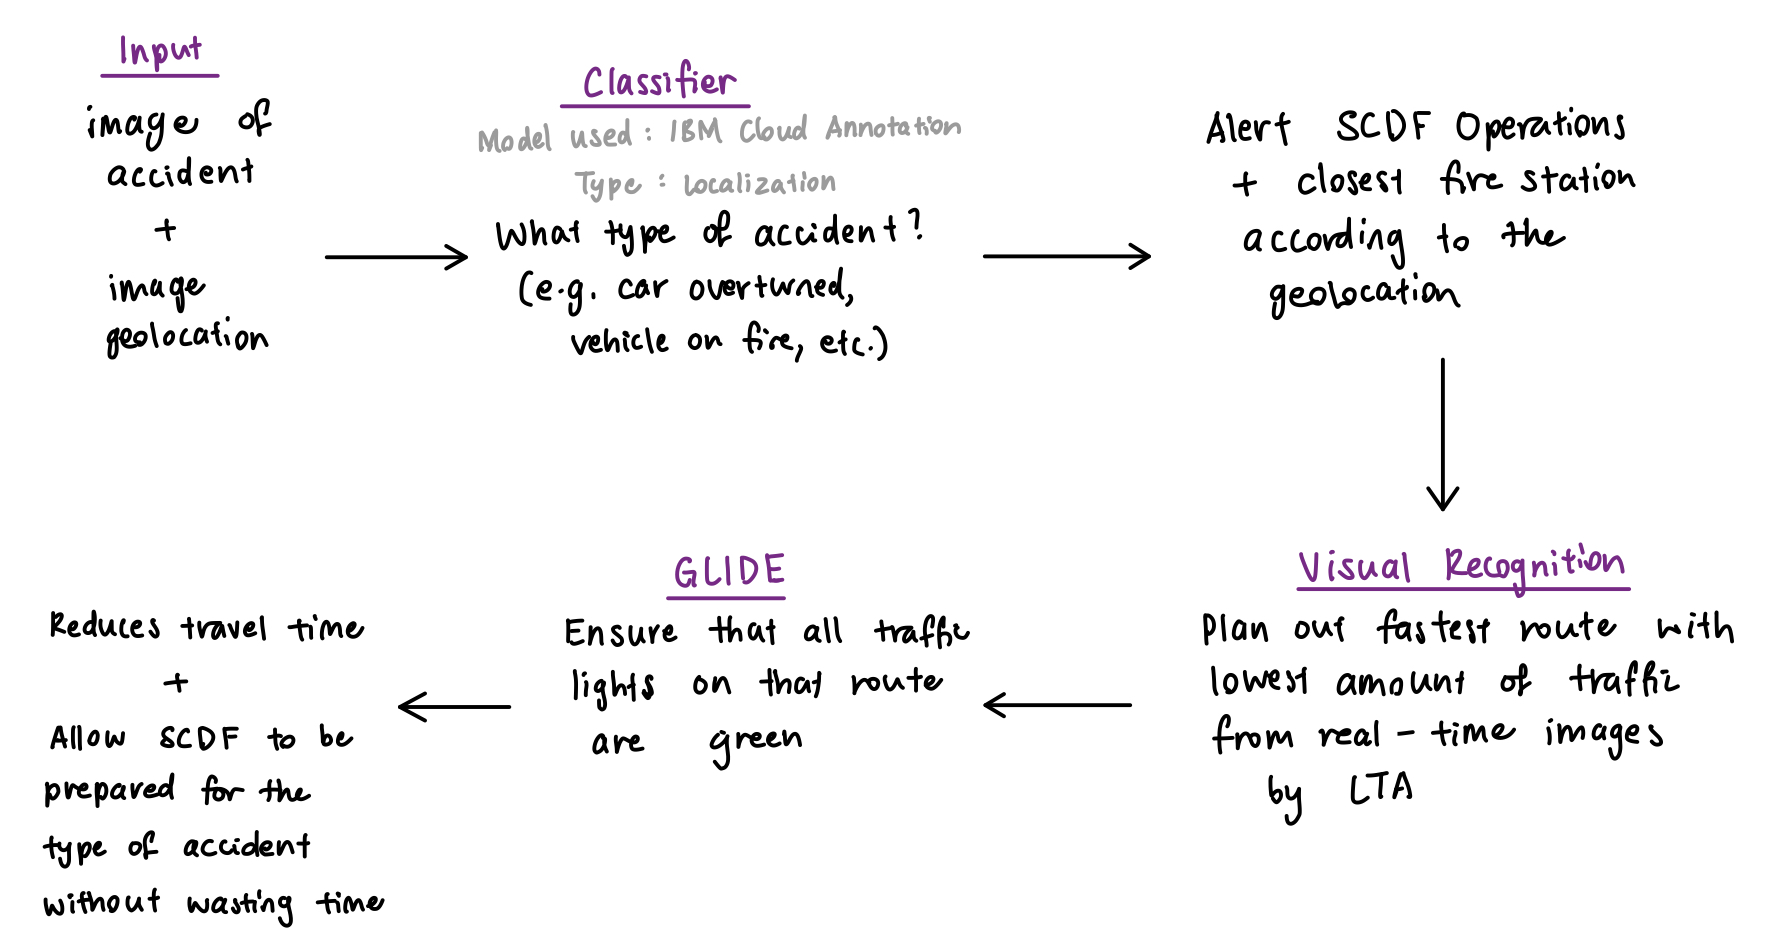 Input
image of
accident
+
image
geolocation
Classifier
Model used : IBM Cloud Annotation
Type : Localization
What type of accident?
(e.g. car overturned,
vehicle on fire, etc.)
Alert SCDF Operations
+ closest fire station
according to the
geolocation
Visual Recognition
Plan out fastest route with
lowest amount of traffic
from real-time images
by LTA
GLIDE
Ensure that all traffic
lights on that route
are green
Reduces travel time
+
Allow SCDF to be
prepared for the
type of accident
without wasting time